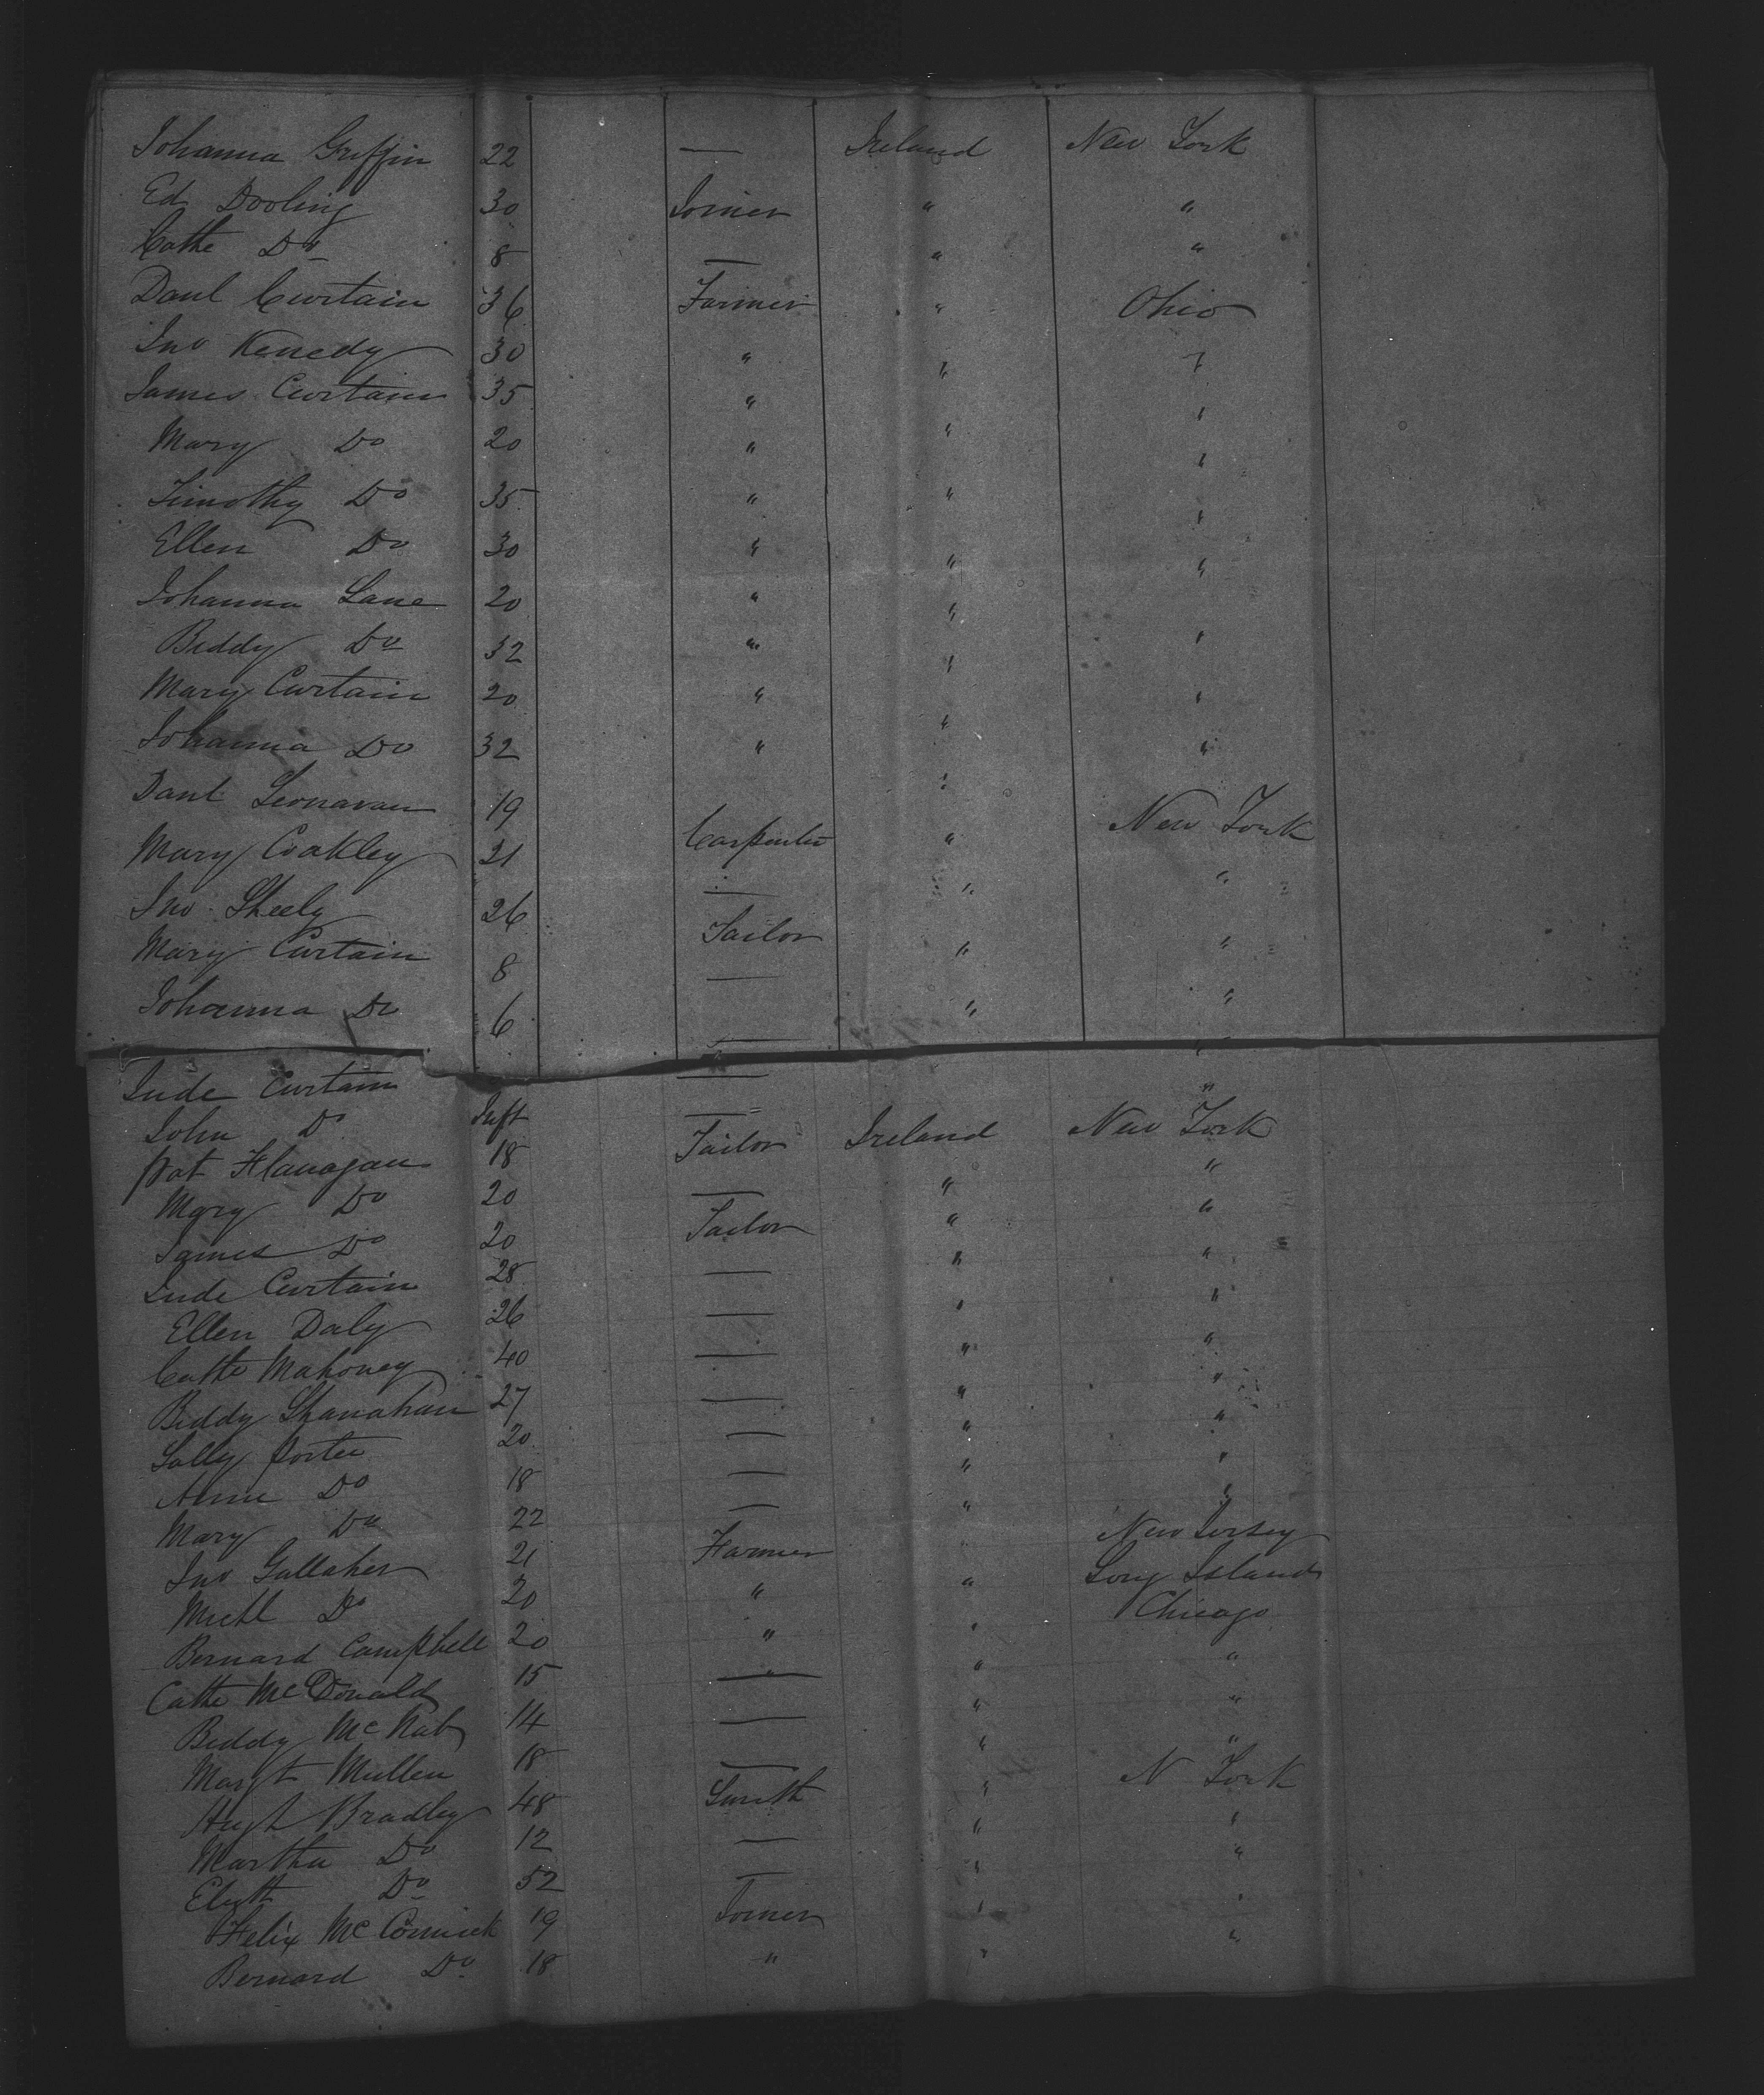 Johanna Griffin 22 — Ireland New York
Ed Dooling 30 Joiner " "
Cathe Do 8 — " "
Danl Curtain 36 Farmer " Ohio
Jno Kenedy 30 " " "
James Curtain 35 " " "
Mary Do 20 " " "
Timothy Do 35 " " "
Ellen Do 30 " " "
Johanna Lane 20 " " "
Biddy Do 32 " " "
Mary Curtain 20 " " "
Johanna Do 32 " " "
Danl 19 Carpenter " New York
Mary Coakley 21 — " "
Jno Sheely 26 Tailor " "
Mary Curtain 8 — " "
Johanna Do 6 — "
Jude Curtain — "
John Do Inft — Ireland New York
Pat Flanagan 18 Tailor " "
Mary Do 20 — " "
James Do 20 Tailor " "
Jude Curtain 28 — " "
Ellen Daly 26 — " "
Cathe Mahoney 40 — " "
Biddy Shanahan 27 — " "
Sally Porter 20 — " "
Anne Do 18 — " "
Mary Do 22 — " New Jersey
Jno Gallaher 21 Farmer " Long Island
Michl Do 20 " " Chicago
Bernard Campbell 20 " " "
Cathe McDonald 15 — " "
Biddy McNab 14 — " "
Margt Mullen 18 — " N York
Hugh Bradley 48 Smith " "
Martha Do 12 — " "
Elizth Do 52 — " "
Felix McCormick 19 Joiner " "
Bernard Do 18 " "